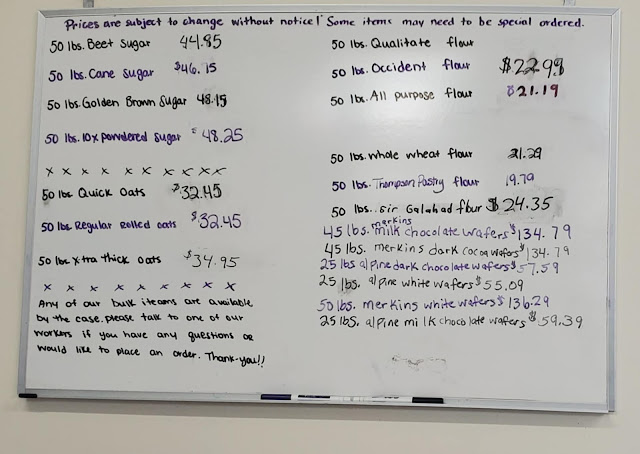 Prices are subject to change without notice! Some items may need to be special ordered.
50 lbs. Beet Sugar 44.85
50 lbs. Cane Sugar $46.15
50 lbs. Golden Brown Sugar 48.15
50 lbs. 10x powdered sugar $48.25
x x x x x x x x x x
50 lbs Quick Oats $32.45
50 lbs Regular Rolled oats $32.45
50 lbs x-tra thick oats $34.95
x x x x x x x x x
Any of our bulk iteams are available
by the case. please talk to one of our
workers if you have any questions or
would like to place an order. Thank-you!!
50 lbs. Qualitate flour
50 lbs. Occident flour $22.99
50 lbs. All purpose flour $21.19
50 lbs. whole wheat flour 21.29
50 lbs. Thompson Pastry flour 19.79
50 lbs. sir Galahad flour $24.35
45 lbs. merkins milk chocolate wafers $134.79
45 lbs. merkins dark cocoa wafers $134.79
25 lbs alpine dark chocolate wafers $57.59
25 lbs. alpine white wafers $55.09
50 lbs. merkins white wafers $136.29
25 lbs. alpine milk chocolate wafers $59.39